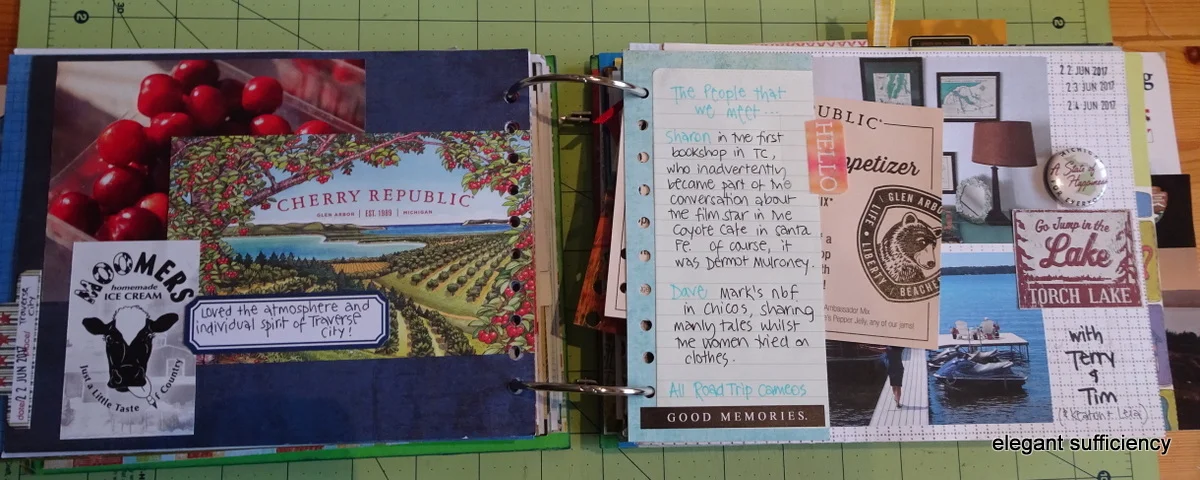 CHERRY REPUBLIC
GLEN ARBOR | EST. 1989 | MICHIGAN
MOOMERS
homemade
ICE CREAM
Just a Little Taste of Country
Loved the atmosphere and
individual spirit of Traverse
City!
date/ 22 JUN 2017
Traverse
City
The People that
we meet....
Sharon in the first
bookshop in TC,
who inadvertently
became part of the
conversation about
the film star in the
Coyote Cafe in Santa
Fe. Of course, it
was Dermot Mulroney.
Dave Mark's nbf
in Chicos, sharing
manly tales whilst
the women tried on
clothes.
All Road Trip Cameos
GOOD MEMORIES.
UBLIC
HELLO
ppetizer
LIFE LIBERTY BEACHE
GLEN ARBO
Ambassador Mix
Pepper Jelly, any of our jams!
22 JUN 2017
23 JUN 2017
24 JUN 2017
A State of
Happiness
Go Jump in the
Lake
TORCH LAKE
with
Terry
&
Tim
elegant sufficiency